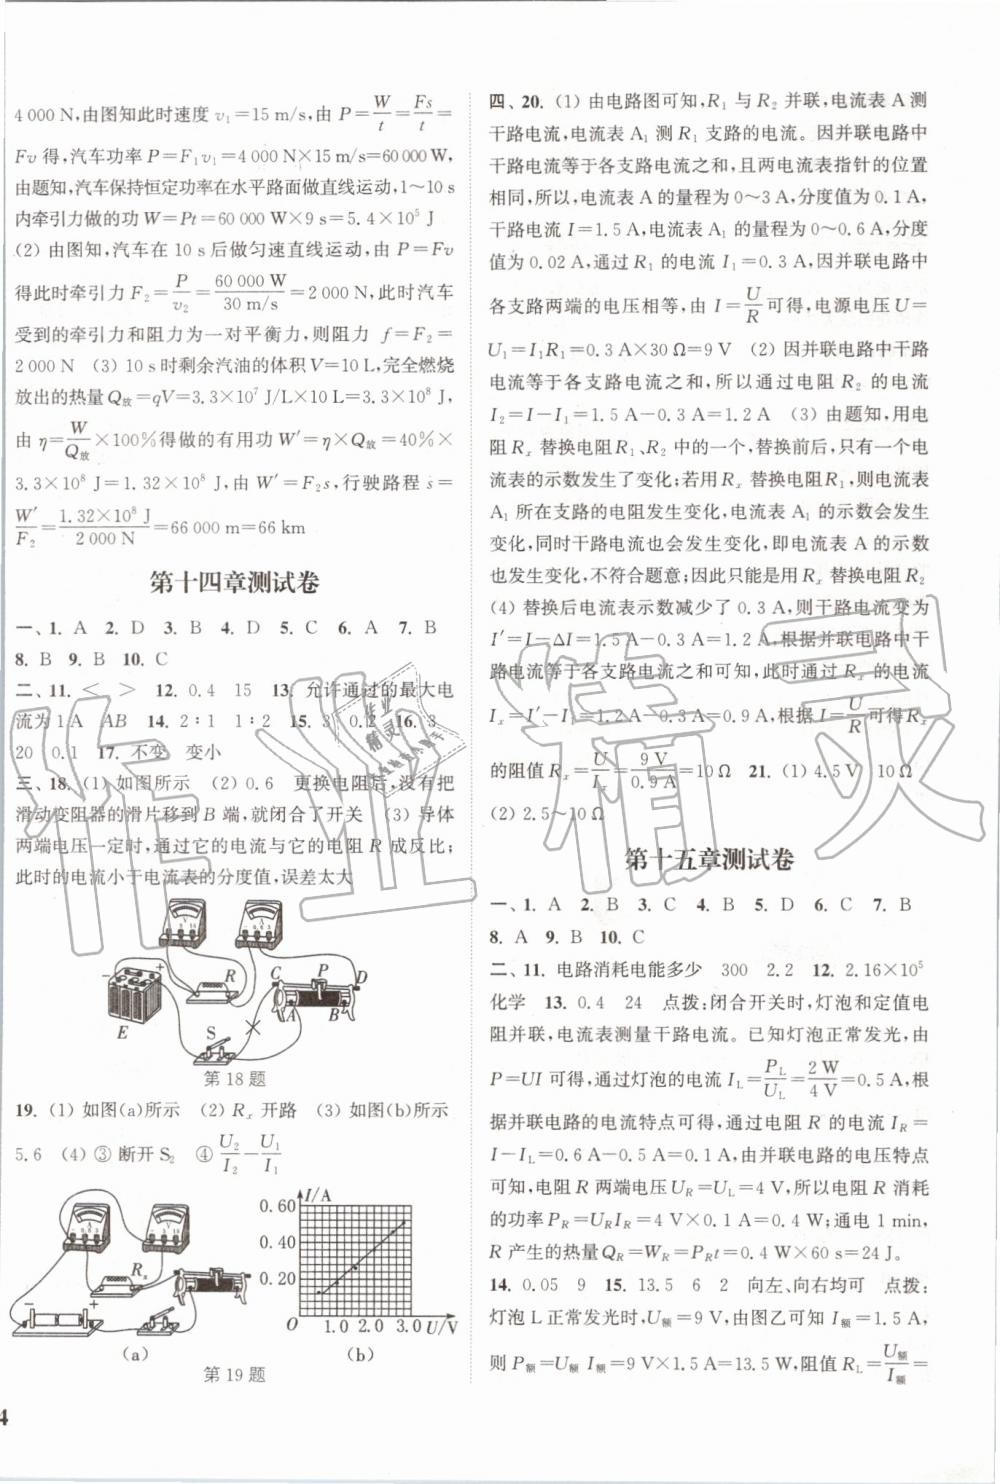 4 000 N,由图知此时速度 v₁=15 m/s,由 P=W/t=Fs/t=
Fv 得,汽车功率 P=F₁v₁=4 000 N×15 m/s=60 000 W,
由题知,汽车保持恒定功率在水平路面做直线运动,1～10 s
内牵引力做的功 W=Pt=60 000 W×9 s=5.4×10⁵ J
(2) 由图知,汽车在 10 s 后做匀速直线运动,由 P=Fv
得此时牵引力 F₂=P/v₂=60 000 W/30 m/s=2 000 N,此时汽车
受到的牵引力和阻力为一对平衡力,则阻力 f=F₂=
2 000 N (3) 10 s 时剩余汽油的体积 V=10 L,完全燃烧
放出的热量 Q放=qV=3.3×10⁷ J/L×10 L=3.3×10⁸ J,
由 η=W/Q放×100%得做的有用功 W′=η×Q放=40%×
3.3×10⁸ J=1.32×10⁸ J,由 W′=F₂s,行驶路程 s=
W′/F₂=1.32×10⁸ J/2 000 N=66 000 m=66 km
第十四章测试卷
一、1. A 2. D 3. B 4. D 5. C 6. A 7. B
8. B 9. B 10. C
二、11. < > 12. 0.4 15 13. 允许通过的最大电
流为1 A AB 14. 2∶1 1∶2 15. 3 0.2 16. 3
20 0.1 17. 不变 变小
三、18. (1) 如图所示 (2) 0.6 更换电阻后,没有把
滑动变阻器的滑片移到 B 端,就闭合了开关 (3) 导体
两端电压一定时,通过它的电流与它的电阻 R 成反比;
此时的电流小于电流表的分度值,误差太大
V A
R C P D
E S A B
第 18 题
19. (1) 如图(a)所示 (2) Rₓ 开路 (3) 如图(b)所示
5.6 (4) ③ 断开 S₂ ④ U₂/I₂−U₁/I₁
A V
Rₓ
(a)
I/A
0.60
0.40
0.20
O 1.0 2.0 3.0 U/V
(b)
第 19 题
4
四、20. (1) 由电路图可知,R₁ 与 R₂ 并联,电流表 A 测
干路电流,电流表 A₁ 测 R₁ 支路的电流。因并联电路中
干路电流等于各支路电流之和,且两电流表指针的位置
相同,所以,电流表 A 的量程为 0～3 A,分度值为 0.1 A,
干路电流 I=1.5 A,电流表 A₁ 的量程为 0～0.6 A,分度
值为 0.02 A,通过 R₁ 的电流 I₁=0.3 A,因并联电路中
各支路两端的电压相等,由 I=U/R可得,电源电压 U=
U₁=I₁R₁=0.3 A×30 Ω=9 V (2) 因并联电路中干路
电流等于各支路电流之和,所以通过电阻 R₂ 的电流
I₂=I−I₁=1.5 A−0.3 A=1.2 A (3) 由题知,用电
阻 Rₓ 替换电阻 R₁、R₂ 中的一个,替换前后,只有一个电
流表的示数发生了变化;若用 Rₓ 替换电阻R₁,则电流表
A₁ 所在支路的电阻发生变化,电流表 A₁ 的示数会发生
变化,同时干路电流也会发生变化,即电流表 A 的示数
也发生变化,不符合题意;因此只能是用 Rₓ 替换电阻 R₂
(4) 替换后电流表示数减少了 0.3 A,则干路电流变为
I′=I−ΔI=1.5 A−0.3 A=1.2 A,根据并联电路中干
路电流等于各支路电流之和可知,此时通过 Rₓ 的电流
Iₓ=I′−I₁=1.2 A−0.3 A=0.9 A,根据 I=U/R可得 Rₓ
的阻值 Rₓ=U/Iₓ=9 V/0.9 A=10 Ω 21. (1) 4.5 V 10 Ω
(2) 2.5～10 Ω
第十五章测试卷
一、1. A 2. B 3. C 4. B 5. D 6. C 7. B
8. A 9. B 10. C
二、11. 电路消耗电能多少 300 2.2 12. 2.16×10⁵
化学 13. 0.4 24 点拨:闭合开关时,灯泡和定值电
阻并联,电流表测量干路电流。已知灯泡正常发光,由
P=UI 可得,通过灯泡的电流 I_L=P_L/U_L=2 W/4 V=0.5 A,根
据并联电路的电流特点可得,通过电阻 R 的电流 I_R=
I−I_L=0.6 A−0.5 A=0.1 A,由并联电路的电压特点
可知,电阻 R 两端电压 U_R=U_L=4 V,所以电阻 R 消耗
的功率 P_R=U_RI_R=4 V×0.1 A=0.4 W;通电 1 min,
R 产生的热量 Q_R=W_R=P_Rt=0.4 W×60 s=24 J。
14. 0.05 9 15. 13.5 6 2 向左、向右均可 点拨:
灯泡 L 正常发光时,U额=9 V,由图乙可知 I额=1.5 A,
则 P额=U额 I额=9 V×1.5 A=13.5 W,阻值 R_L=U额/I额=
作业精灵